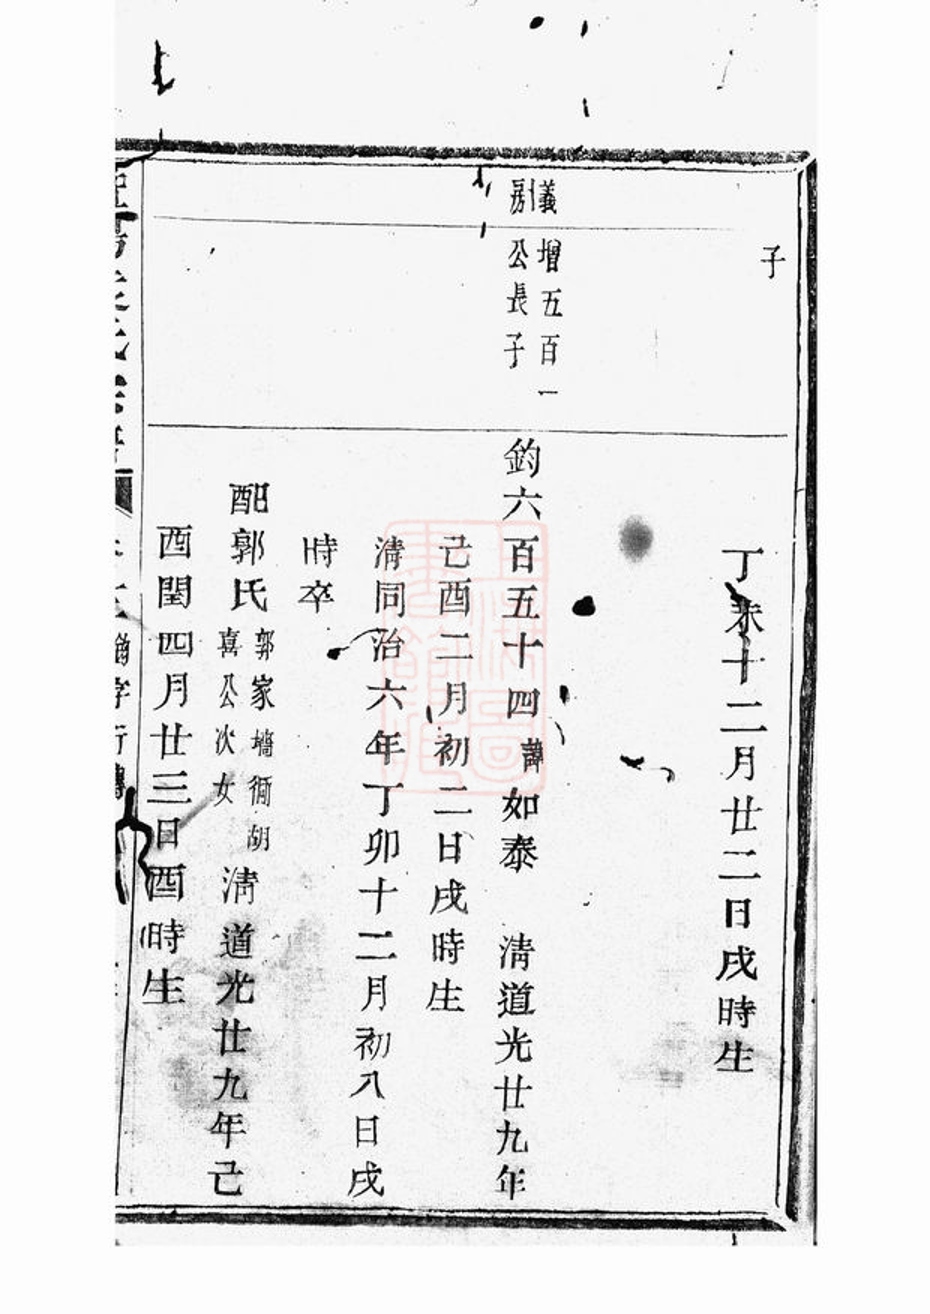 子
丁未十二月廿二日戌時生
義
房
增五百一
公長子
鈞六百五十四諱如泰 清道光廿九年
己酉二月初二日戌時生
清同治六年丁卯十二月初八日戌
時卒
配郭氏
郭家墻衕胡
喜公次女
清道光廿九年己
酉閏四月廿三日酉時生
字行傳